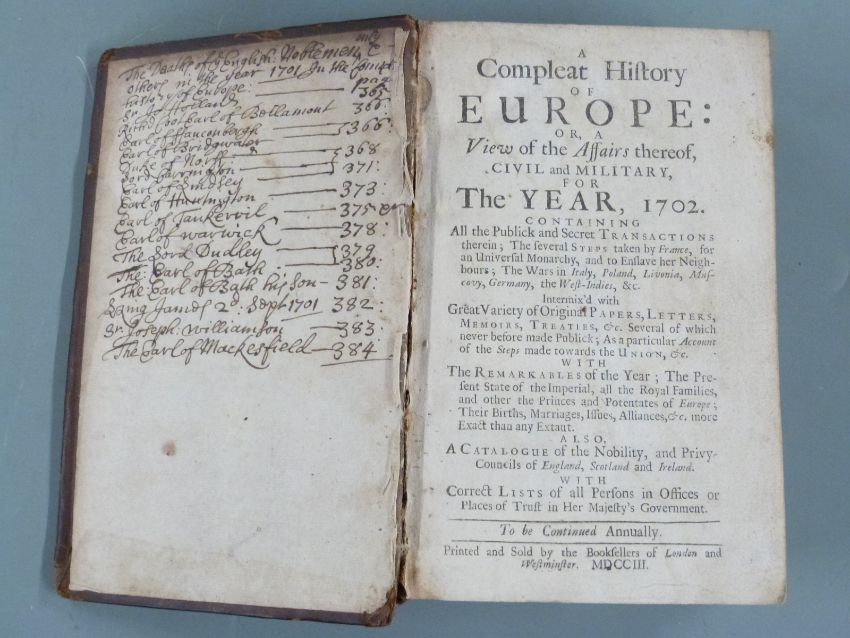 The Deaths of yᵉ English Noblemen &c
others in the year 1701 In the former
History of Europe: pag
Sr. Jo: Holland 365
Richd Coot Earl of Bellamont 366:
Earl of Fauconbergh 366:
Earl of Bridgwater
Duke of Norff: 368
Lord Carrington 371:
Earl of Lindsey
Earl of Huntington 373:
Earl of Tankervil 375
Earl of Warwick 378:
The Lord Dudley 379
The Earl of Bath 380:
The Earl of Bath his Son 381:
King James 2d. Sept 1701 382:
Sr. Joseph: Williamson 383:
The Earl of Mackesfield 384
A
Compleat History
OF
EUROPE:
OR, A
View of the Affairs thereof,
CIVIL and MILITARY,
FOR
The YEAR, 1702.
CONTAINING
All the Publick and Secret TRANSACTIONS
therein; The several STEPS taken by France, for
an Universal Monarchy, and to Enslave her Neigh-
bours; The Wars in Italy, Poland, Livonia, Mus-
covy, Germany, the West-Indies, &c.
Intermix'd with
Great Variety of Original PAPERS, LETTERS,
MEMOIRS, TREATIES, &c. Several of which
never before made Publick; As a particular Account
of the Steps made towards the UNION, &c.
WITH
The REMARKABLES of the Year; The Pre-
sent State of the Imperial, all the Royal Families,
and other the Princes and Potentates of Europe;
Their Births, Marriages, Issues, Alliances, &c. more
Exact than any Extant.
ALSO,
A CATALOGUE of the Nobility, and Privy-
Councils of England, Scotland and Ireland.
WITH
Correct LISTS of all Persons in Offices or
Places of Trust in Her Majesty's Government.
To be Continued Annually.
Printed and Sold by the Booksellers of London and
Westminster. MDCCIII.